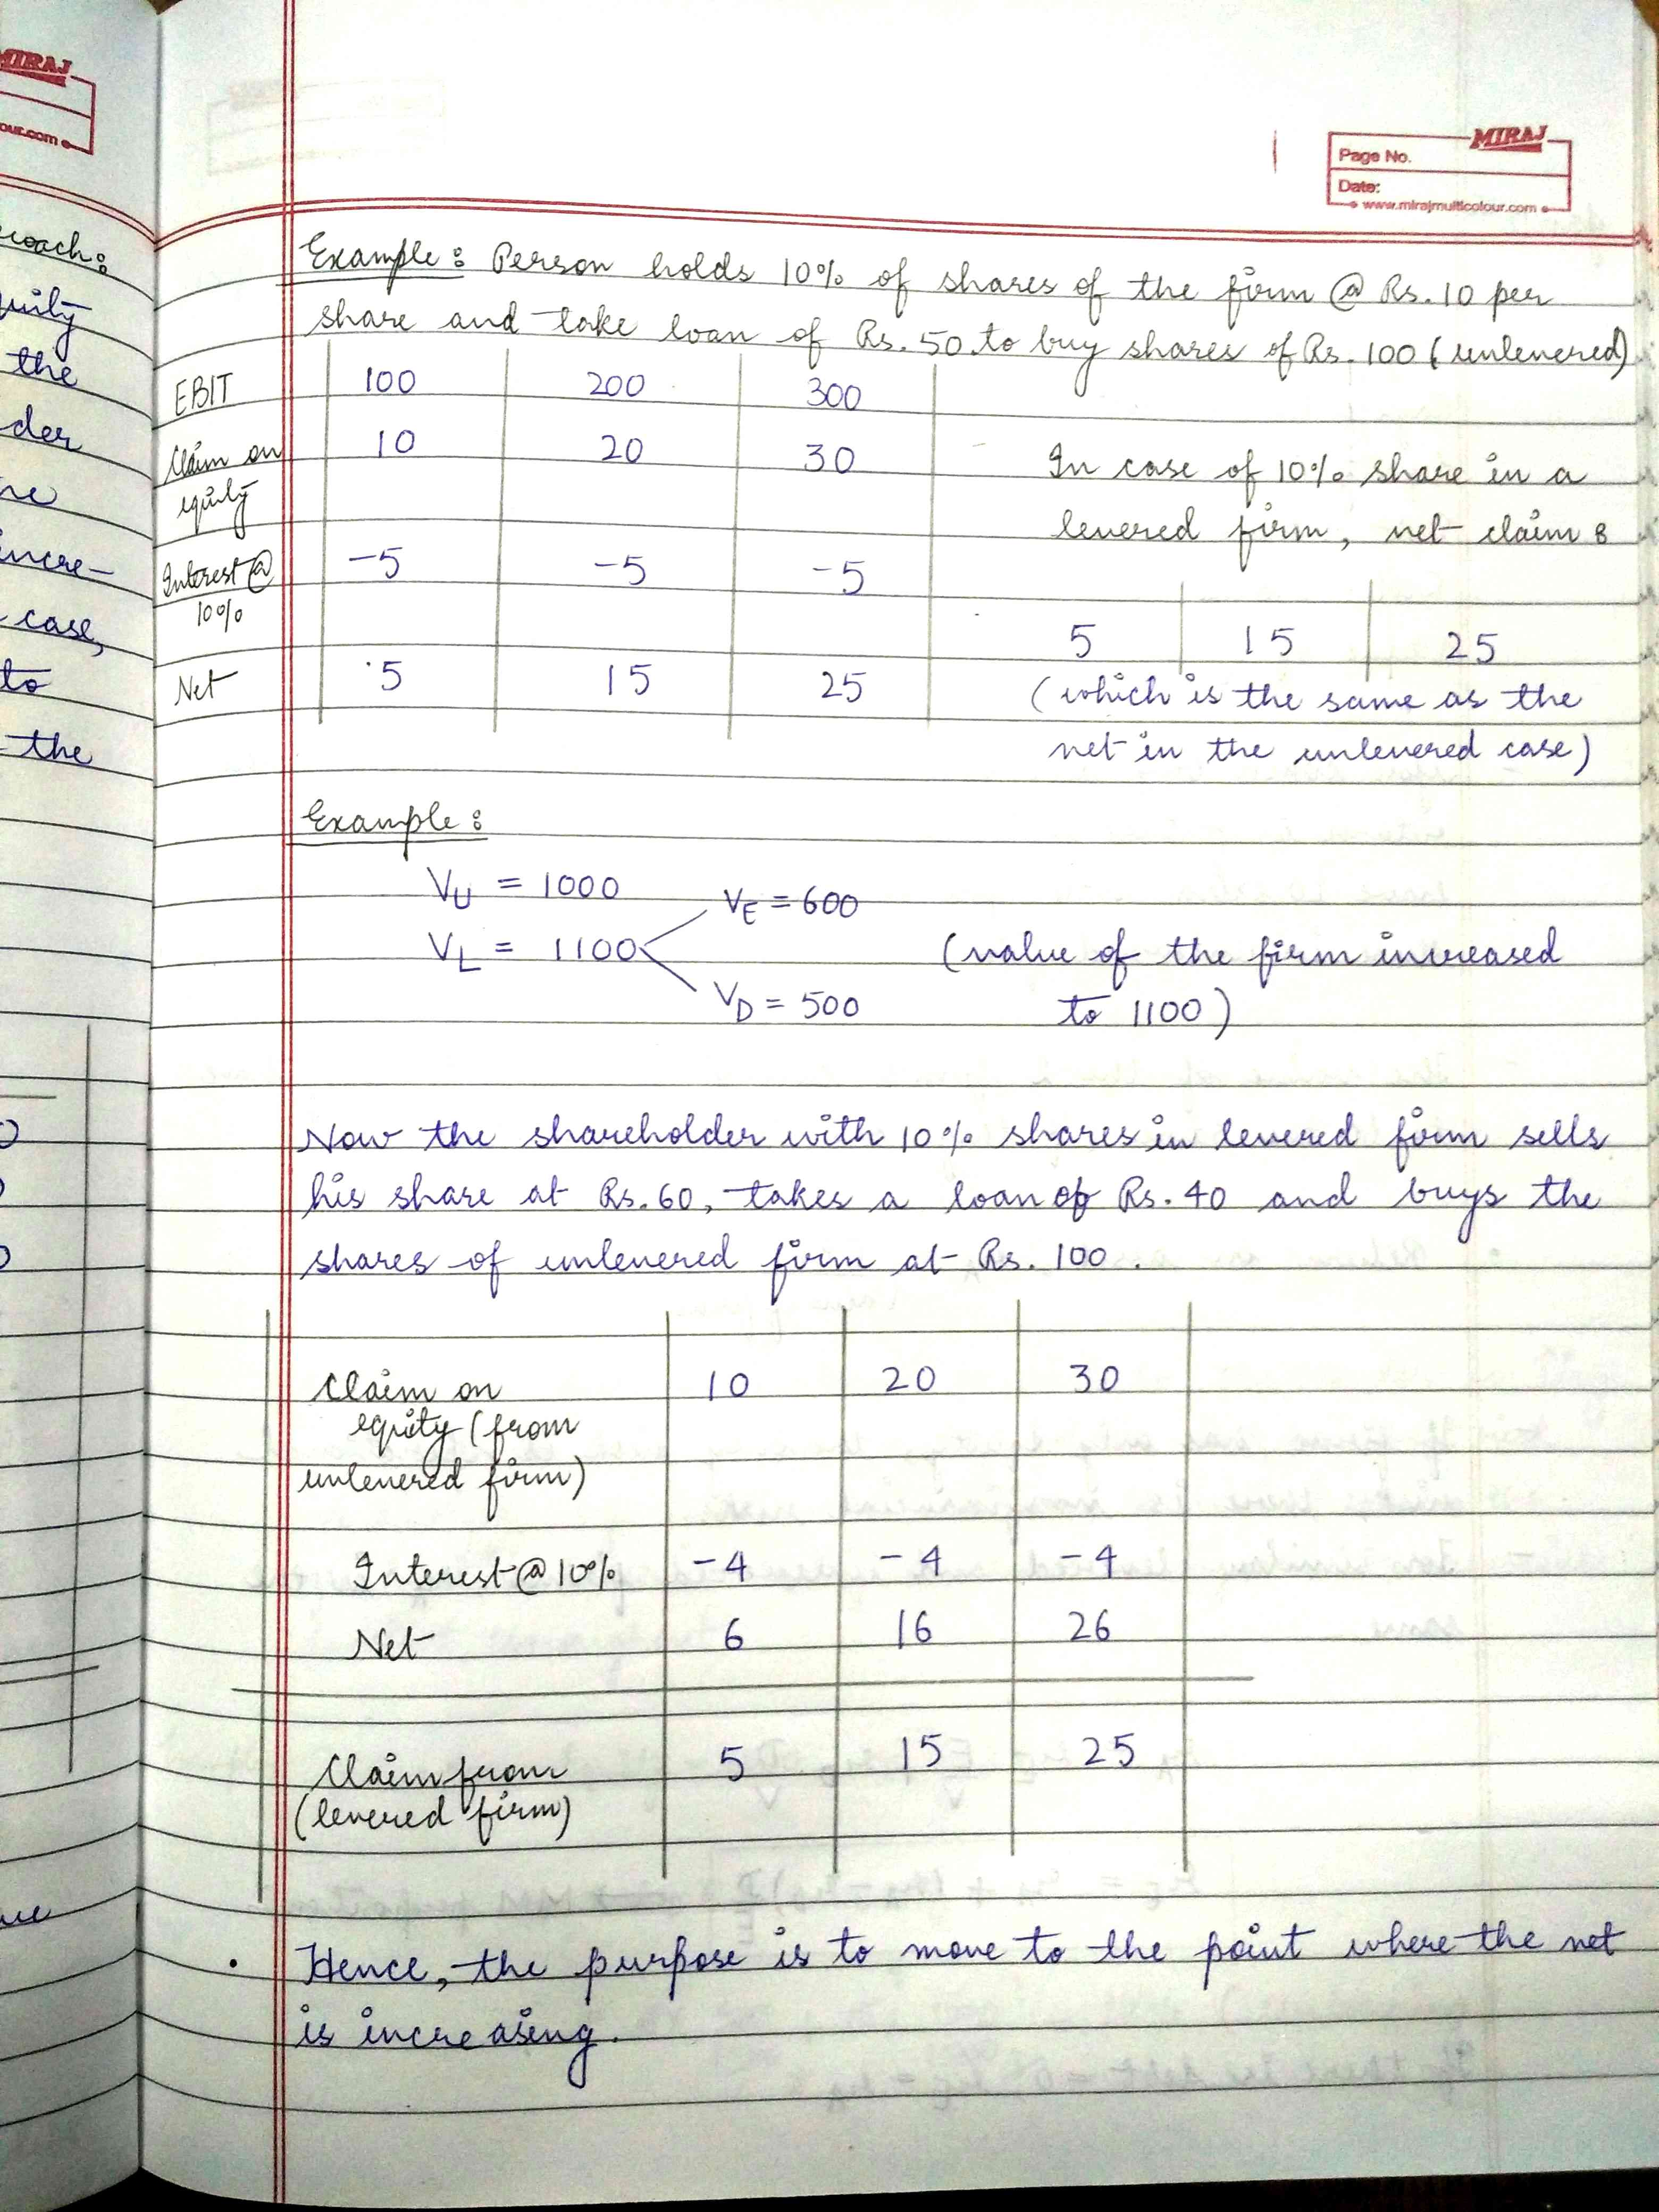 MIRAJ
our.com
roach:
quity
the
der
ne
incre-
case,
to
the
MIRAJ
Page No.
Date:
www.mirajmulticolour.com
Example: Person holds 10% of shares of the firm @ Rs. 10 per
share and take loan of Rs. 50 to buy shares of Rs. 100 (unlevered)
EBIT 100 200 300
Claim on equity 10 20 30
Interest @ 10% -5 -5 -5
Net 5 15 25
In case of 10% share in a
levered firm, net claim :
5 15 25
(which is the same as the
net in the unlevered case)
Example:
VU = 1000
VL = 1100
VE = 600
VD = 500
(value of the firm increased
to 1100)
Now the shareholder with 10% shares in levered firm sells
his share at Rs. 60, takes a loan of Rs. 40 and buys the
shares of unlevered firm at Rs. 100.
Claim on 10 20 30
equity (from
unlevered firm)
Interest @ 10% -4 -4 -4
Net 6 16 26
Claim from 5 15 25
(levered firm)
• Hence, the purpose is to move to the point where the net
is increasing.